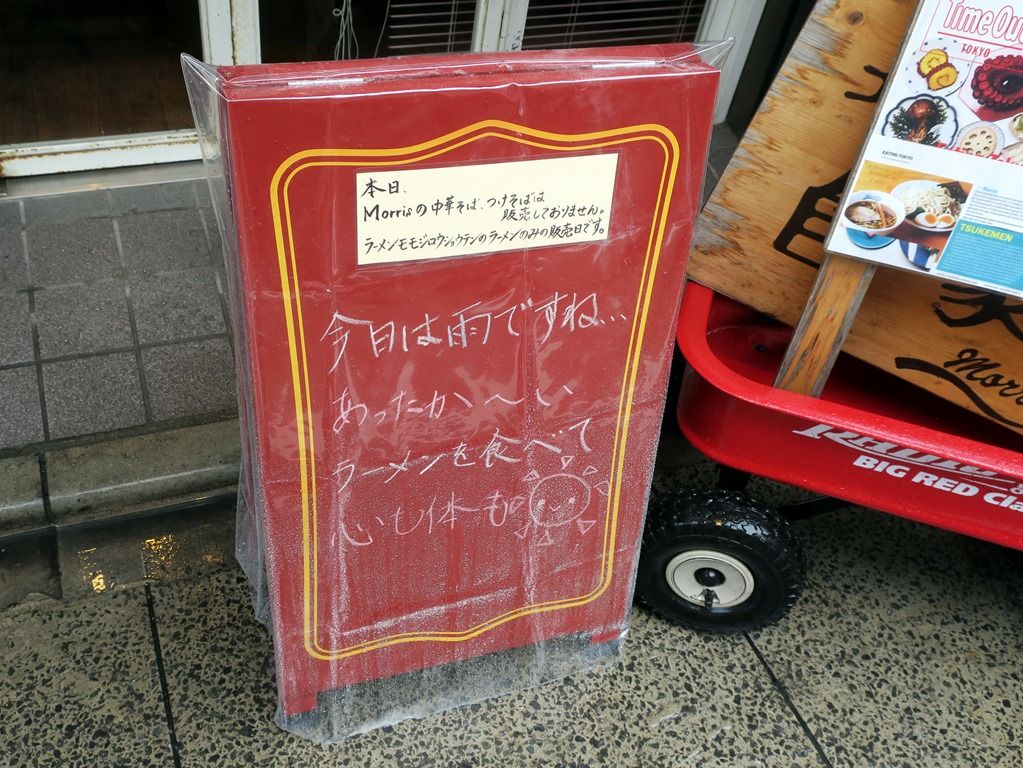 本日、
Morrisの中華そば、つけそばは
販売しておりません。
ラーメンモモジロウショウテンのラーメンのみの販売日です。
今日は雨ですね…
あったか〜い
ラーメンを食べて
心も体も
Time Out
TOKYO
EATING TOKYO
TSUKEMEN
Morri
BIG RED Cla